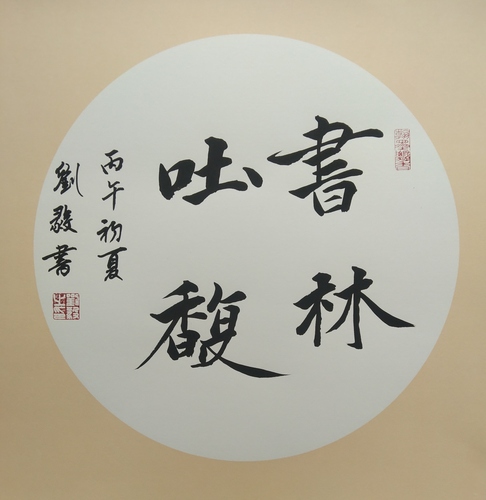 書林
吐馥
丙午初夏
劉毅書